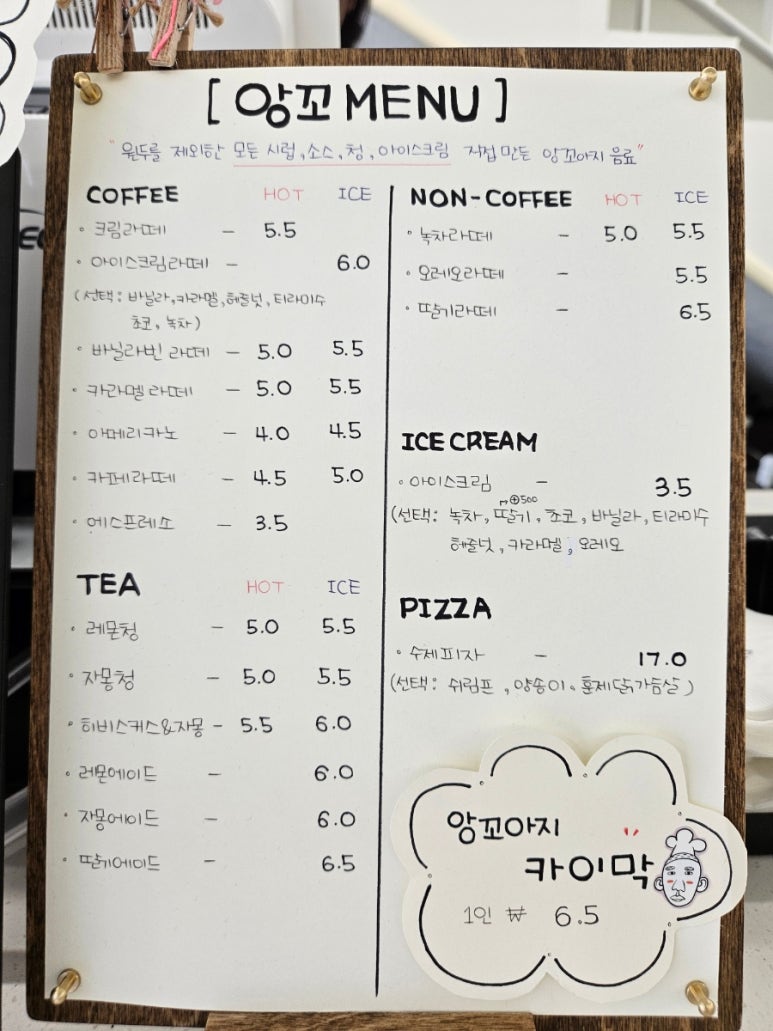 [ 앙꼬 MENU ]
"원두를 제외한 모든 시럽, 소스, 청, 아이스크림 직접 만든 앙꼬아지 음료"
COFFEE HOT ICE
• 크림라떼 - 5.5
• 아이스크림라떼 - 6.0
(선택: 바닐라, 카라멜, 헤즐넛, 티라미수
초코, 녹차)
• 바닐라빈 라떼 - 5.0 5.5
• 카라멜 라떼 - 5.0 5.5
• 아메리카노 - 4.0 4.5
• 카페라떼 - 4.5 5.0
• 에스프레소 - 3.5
TEA HOT ICE
• 레몬청 - 5.0 5.5
• 자몽청 - 5.0 5.5
• 히비스커스&자몽 - 5.5 6.0
• 레몬에이드 - 6.0
• 자몽에이드 - 6.0
• 딸기에이드 - 6.5
NON-COFFEE HOT ICE
• 녹차라떼 - 5.0 5.5
• 오레오라떼 - 5.5
• 딸기라떼 - 6.5
ICE CREAM
• 아이스크림 - 3.5
↱⊕500
(선택: 녹차, 딸기, 초코, 바닐라, 티라미수
헤즐넛, 카라멜, 오레오
PIZZA
• 수제피자 - 17.0
(선택: 쉬림프, 양송이, 훈제닭가슴살)
앙꼬아지
카이막
1인 ₩ 6.5